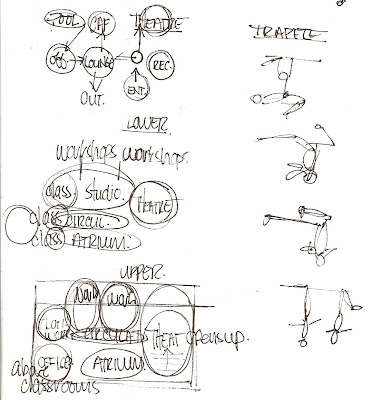 POOL CAF THEATRE
OFF. LOUNGE REC.
OUT. ENT.
TRAPEZE
LOWER.
workshops workshops.
class. studio. THEATRE
class CIRCUL.
class ATRIUM.
UPPER.
work work
class CIRCULATION THEAT opens up.
OFFICE ATRIUM
above
classrooms